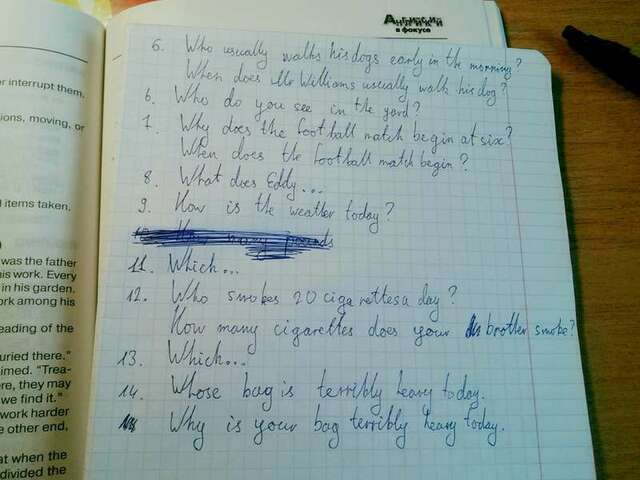 Английский
в фокусе
er interrupt them.
ions, moving, or
d items taken.
was the father
his work. Every
in his garden.
ork among his
eading of the
uried there."
imed. "Trea-
ere, they may
we find it."
work harder
e other end,
at when the
divided the
5. Who usually walks his dogs early in the morning?
When does Mr Williams usually walk his dog?
6. Who do you see in the yard?
7. Why does the football match begin at six?
When does the football match begin?
8. What does Eddy...
9. How is the weather today?
10. How many pounds
11. Which...
12. Who smokes 20 cigarettes a day?
How many cigarettes does your brother smoke?
13. Which...
14. Whose bag is terribly heavy today.
Why is your bag terribly heavy today.